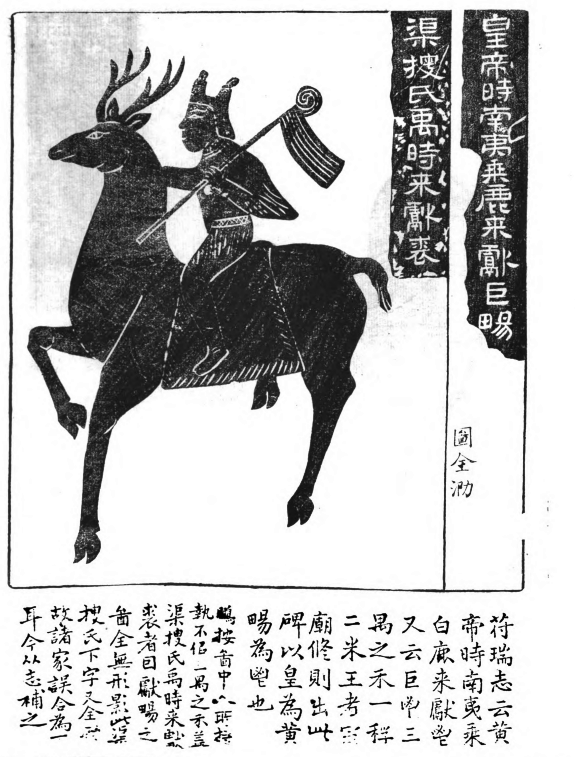 皇帝時南夷乗鹿来獻巨暢
渠搜氏禹時来獻裘
圖全泐
符瑞志云黄
帝時南夷乘
白鹿来獻鬯
又云巨鬯三
禺之禾一稃
二米王者宗
廟修則出此
碑以皇為黄
暢為鬯也
按啚中人所持
執不侣一禺之禾葢
渠搜氏禹時来獻
裘者因獻暢之
啚全無形影此渠
搜氏下字又全泐
故諸家誤合為一
耳今从志補之